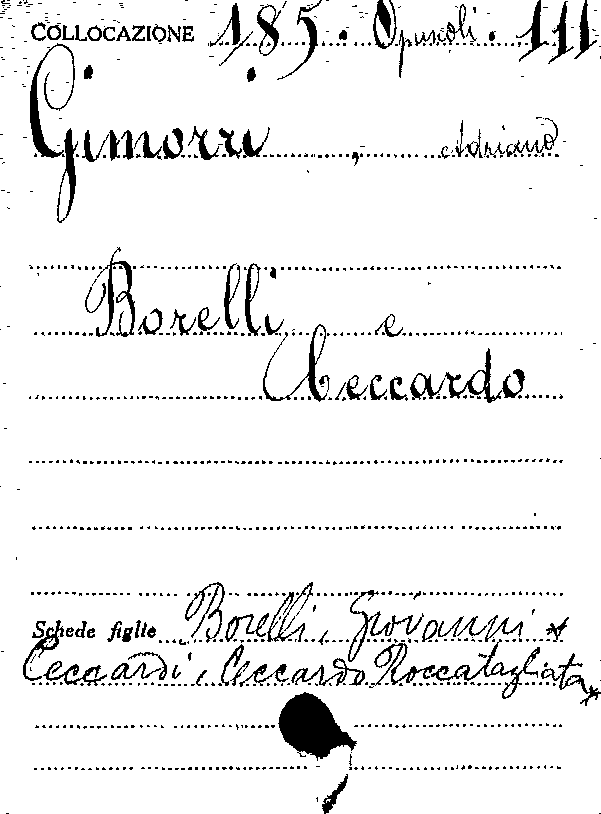 COLLOCAZIONE 185. Opuscoli. 111
Gimorri, Adriano
Borelli e
Ceccardo
Schede figlie Borelli, Giovanni *
Ceccardi, Ceccardo Roccatagliata *